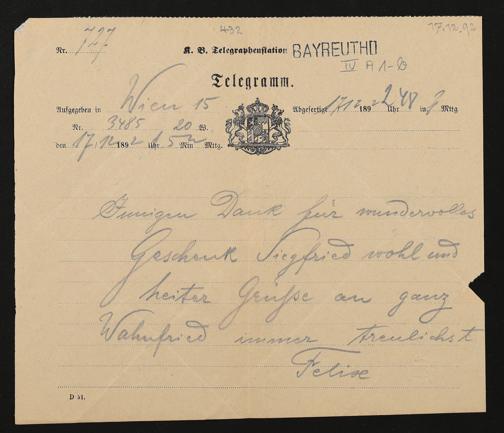 432
17.12.92
Nr. 727 K. B. Telegraphenstation BAYREUTH
IV A 1-8
Telegramm.
Aufgegeben in Wien 15 Abgefertigt 17/12 1892 2 48 Uhr Mittg
Nr. 3485 20 W.
den 17/12 1892 Uhr 5 Min Mittg.
Innigen Dank für wundervolles
Geschenk Siegfried wohl und
heiter Grüße an ganz
Wahnfried immer treulichst
Felix
D 51.